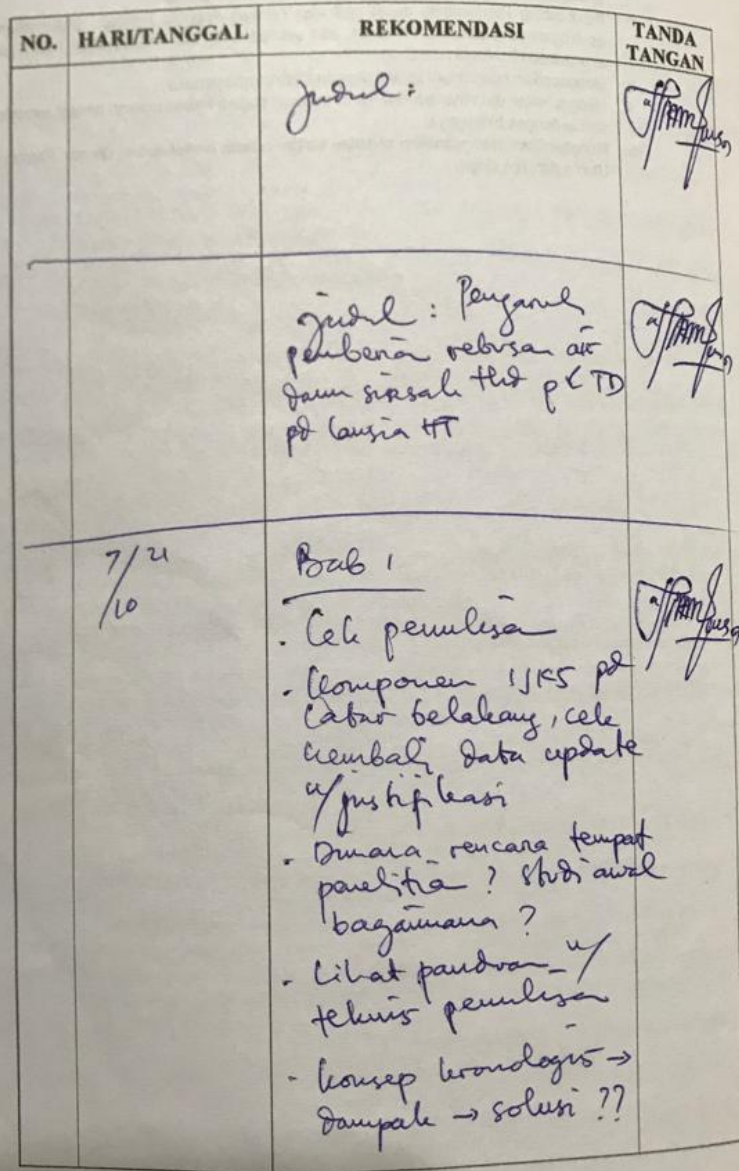 NO. HARI/TANGGAL REKOMENDASI TANDA TANGAN
Judul :
Judul : Pengaruh
pemberian rebusan air
daun sirsak thd p< TD
pd lansia HT
7/10 21
Bab 1
. Cek penulisan
. Komponen IJKS pd
latar belakang, cek
kembali data update
u/ justifikasi
. Dimana rencana tempat
penelitian ? Studi awal
bagaimana ?
. Lihat panduan u/
teknis penulisan
- konsep kronologis →
dampak → solusi ??